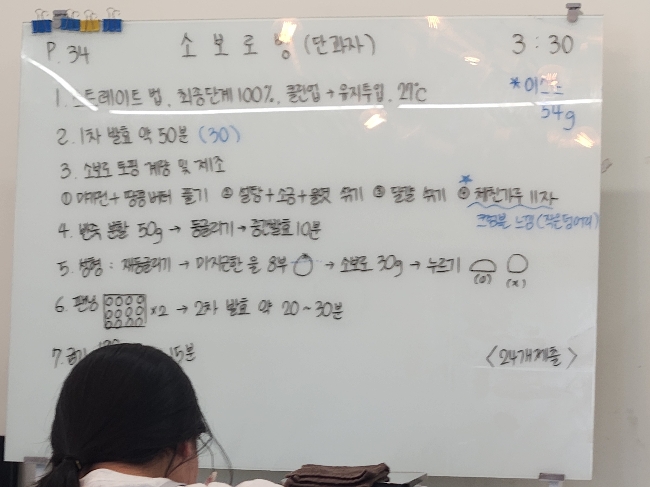 P. 34 소보로빵 (단과자) 3:30
1. 스트레이트 법, 최종단계 100%, 클린업 → 유지투입, 27℃
*이스트
54g
2. 1차 발효 약 50분 (30)
3. 소보로 토핑 계량 및 제조
① 마가린 + 땅콩버터 풀기 ② 설탕 + 소금 + 물엿 섞기 ③ 달걀 섞기 ④ 체친가루 11자
크럼블 느낌 (작은덩어리)
4. 반죽 분할 50g → 둥글리기 → 중간발효 10분
5. 성형 : 재둥글리기 → 미지근한 물 8부 → 소보로 30g → 누르기 (o) (x)
6. 팬닝 ×2 → 2차 발효 약 20~30분
7. 굽기 15분
<24개제출>